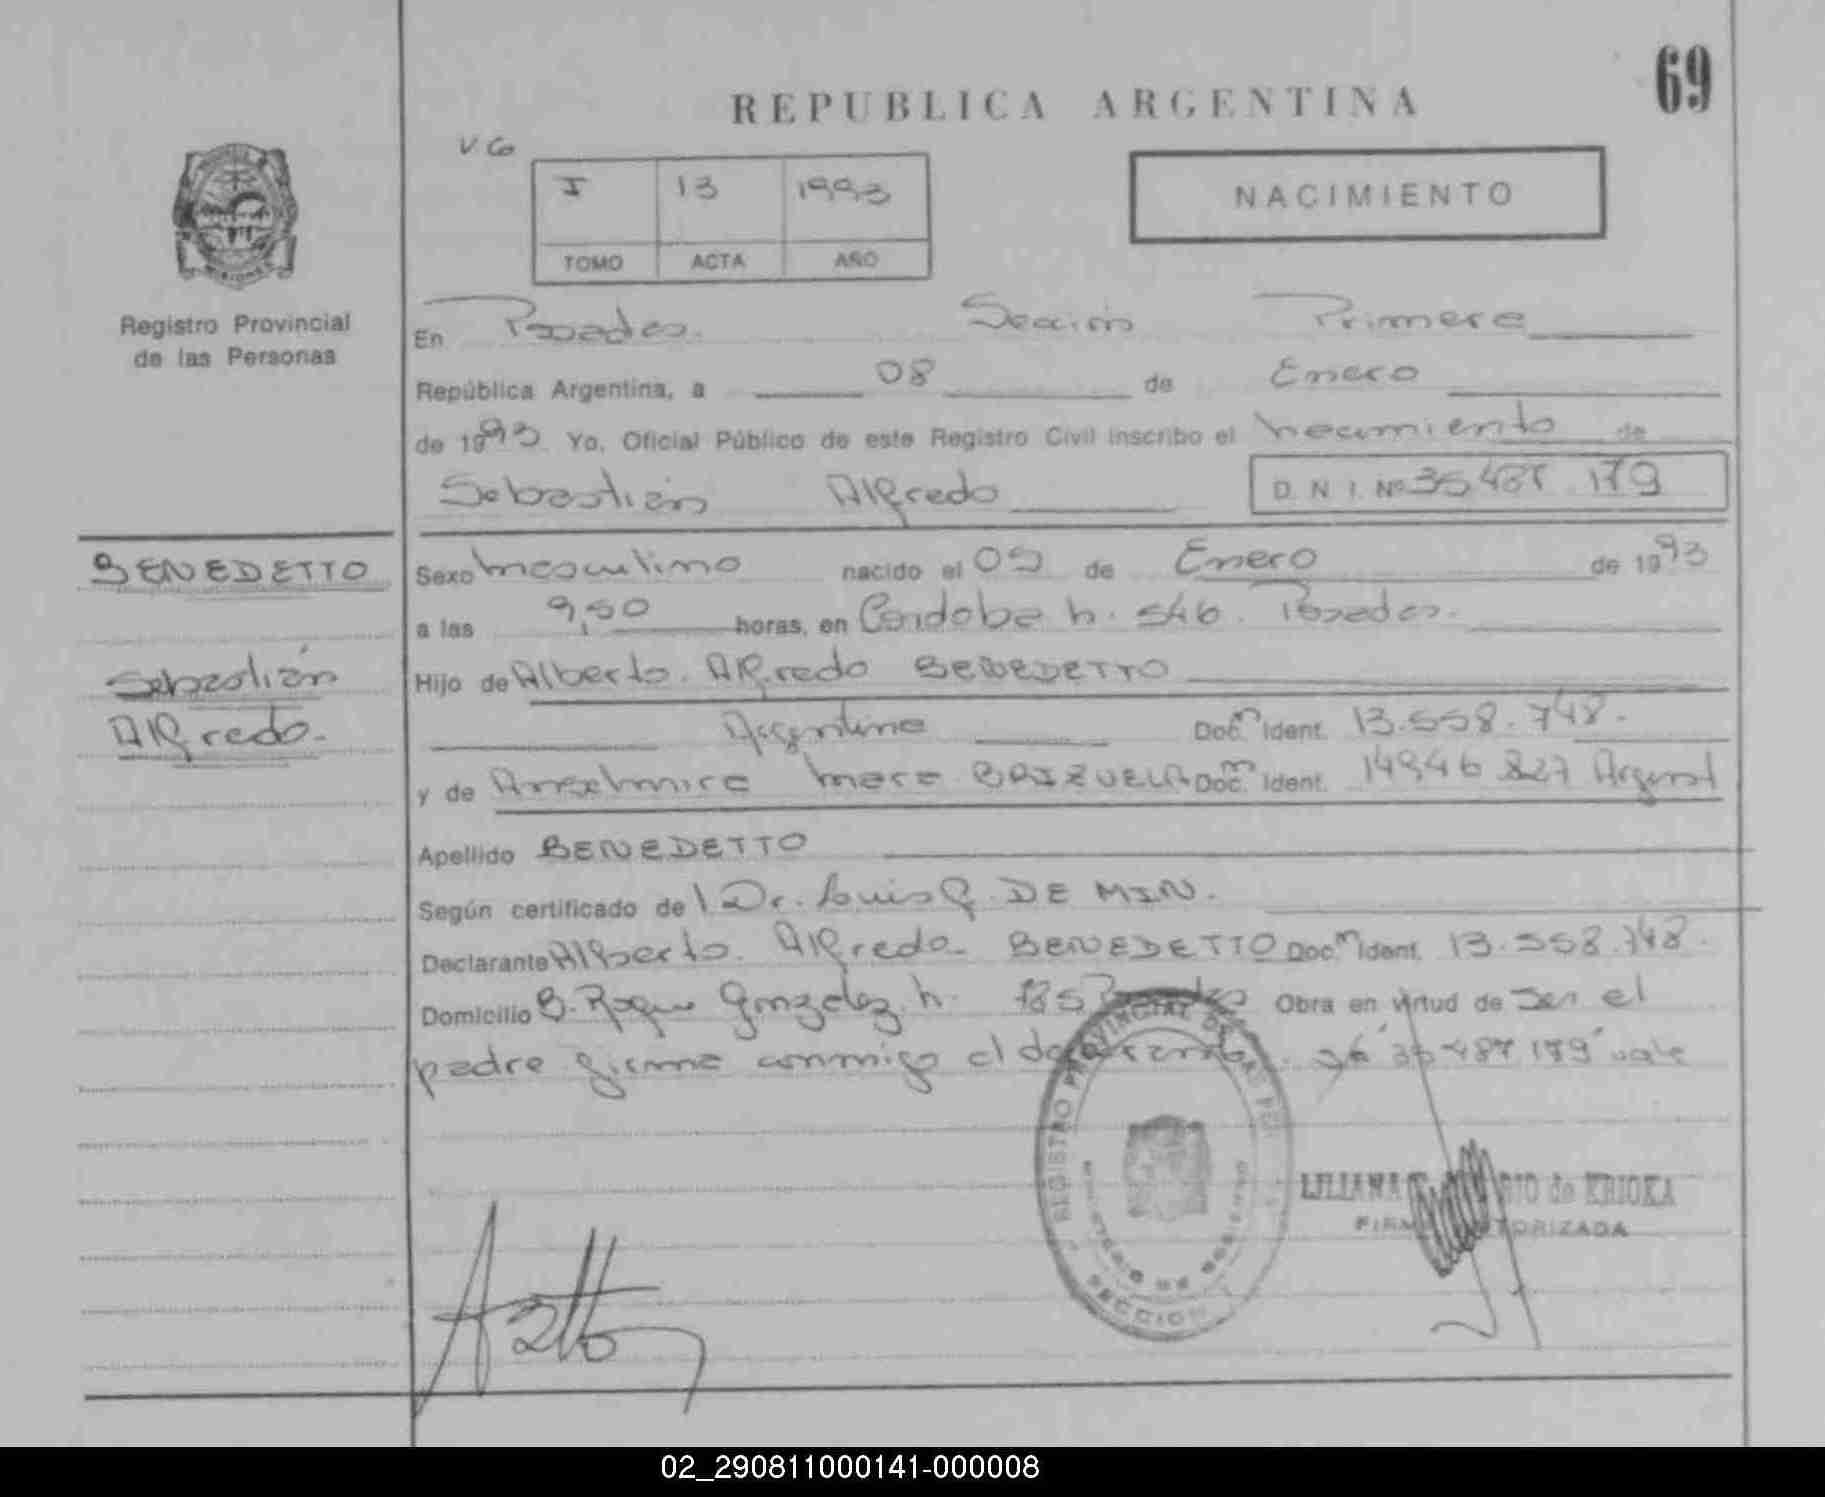 69
REPUBLICA ARGENTINA
V. Co
I 13 1993
TOMO ACTA AÑO
NACIMIENTO
Registro Provincial
de las Personas
En Posadas. Sección Primera
República Argentina, a 08 de Enero
de 1993. Yo, Oficial Público de este Registro Civil inscribo el nacimiento de
Sebastián Alfredo D. N. I. Nº 35.487.179
BENEDETTO
Sebastián
Alfredo.
Sexo masculino nacido el 05 de Enero de 1993
a las 9,50 horas, en Córdoba n. 546. Posadas.
Hijo de Alberto. Alfredo BENEDETTO
Argentino Doc.m Ident. 13.558.748.
y de Mara BRIZUELA Doc.m Ident. 14.946.827 Argent
Apellido BENEDETTO
Según certificado del Dr. Luis G. DE MIN.
Declarante Alberto. Alfredo BENEDETTO Doc.m Ident. 13.558.748.
Domicilio S. Roque González n. 785 Posadas Obra en virtud de ser el
padre firma conmigo el declarante. 35 487 179 vale
REGISTRO PROVINCIAL DE LAS PER
MINISTERIO DE GOBIERNO
SECCION
LILIANA RIO de KRIOKA
FIRMA AUTORIZADA
02_290811000141-000008